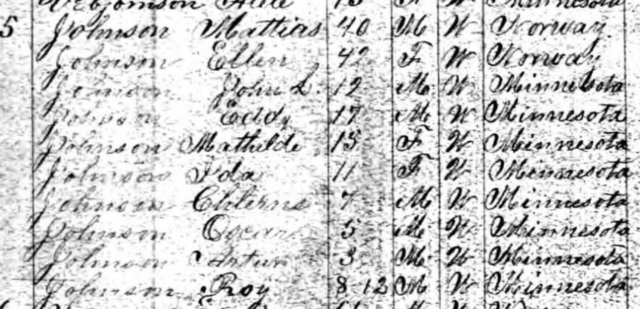 Johnson Alde 13 F W Minnesota
5 Johnson Mathias 40 M W Norway
Johnson Ellen 42 F W Norway
Johnson John L. 19 M W Minnesota
Johnson Eddy 17 M W Minnesota
Johnson Mathilde 15 F W Minnesota
Johnson Ida 11 F W Minnesota
Johnson 7 M W Minnesota
Johnson Oscar 5 M W Minnesota
Johnson Artur 3 M W Minnesota
Johnson Roy 8-12 M W Minnesota